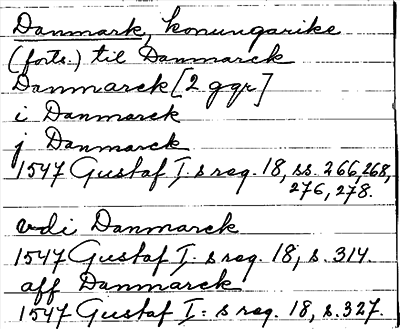 Danmark, konungarike
(forts.) til Danmarck
Danmarck [2 ggr]
i Danmarck
j Danmarck
1547 Gustaf I:s reg. 18, ss. 266, 268,
276, 278.
vdi Danmarck
1547 Gustaf I:s reg. 18, s. 314.
aff Danmarck
1547 Gustaf I:s reg. 18, s. 327.